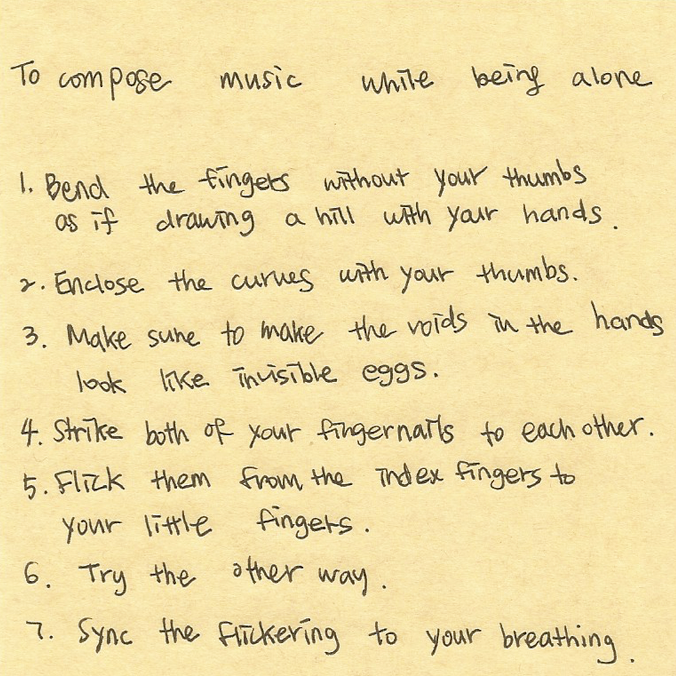 To compose music while being alone
1. Bend the fingers without your thumbs
as if drawing a hill with your hands.
2. Enclose the curves with your thumbs.
3. Make sure to make the voids in the hands
look like invisible eggs.
4. Strike both of your fingernails to each other.
5. Flick them from the index fingers to
your little fingers.
6. Try the other way.
7. Sync the flickering to your breathing.